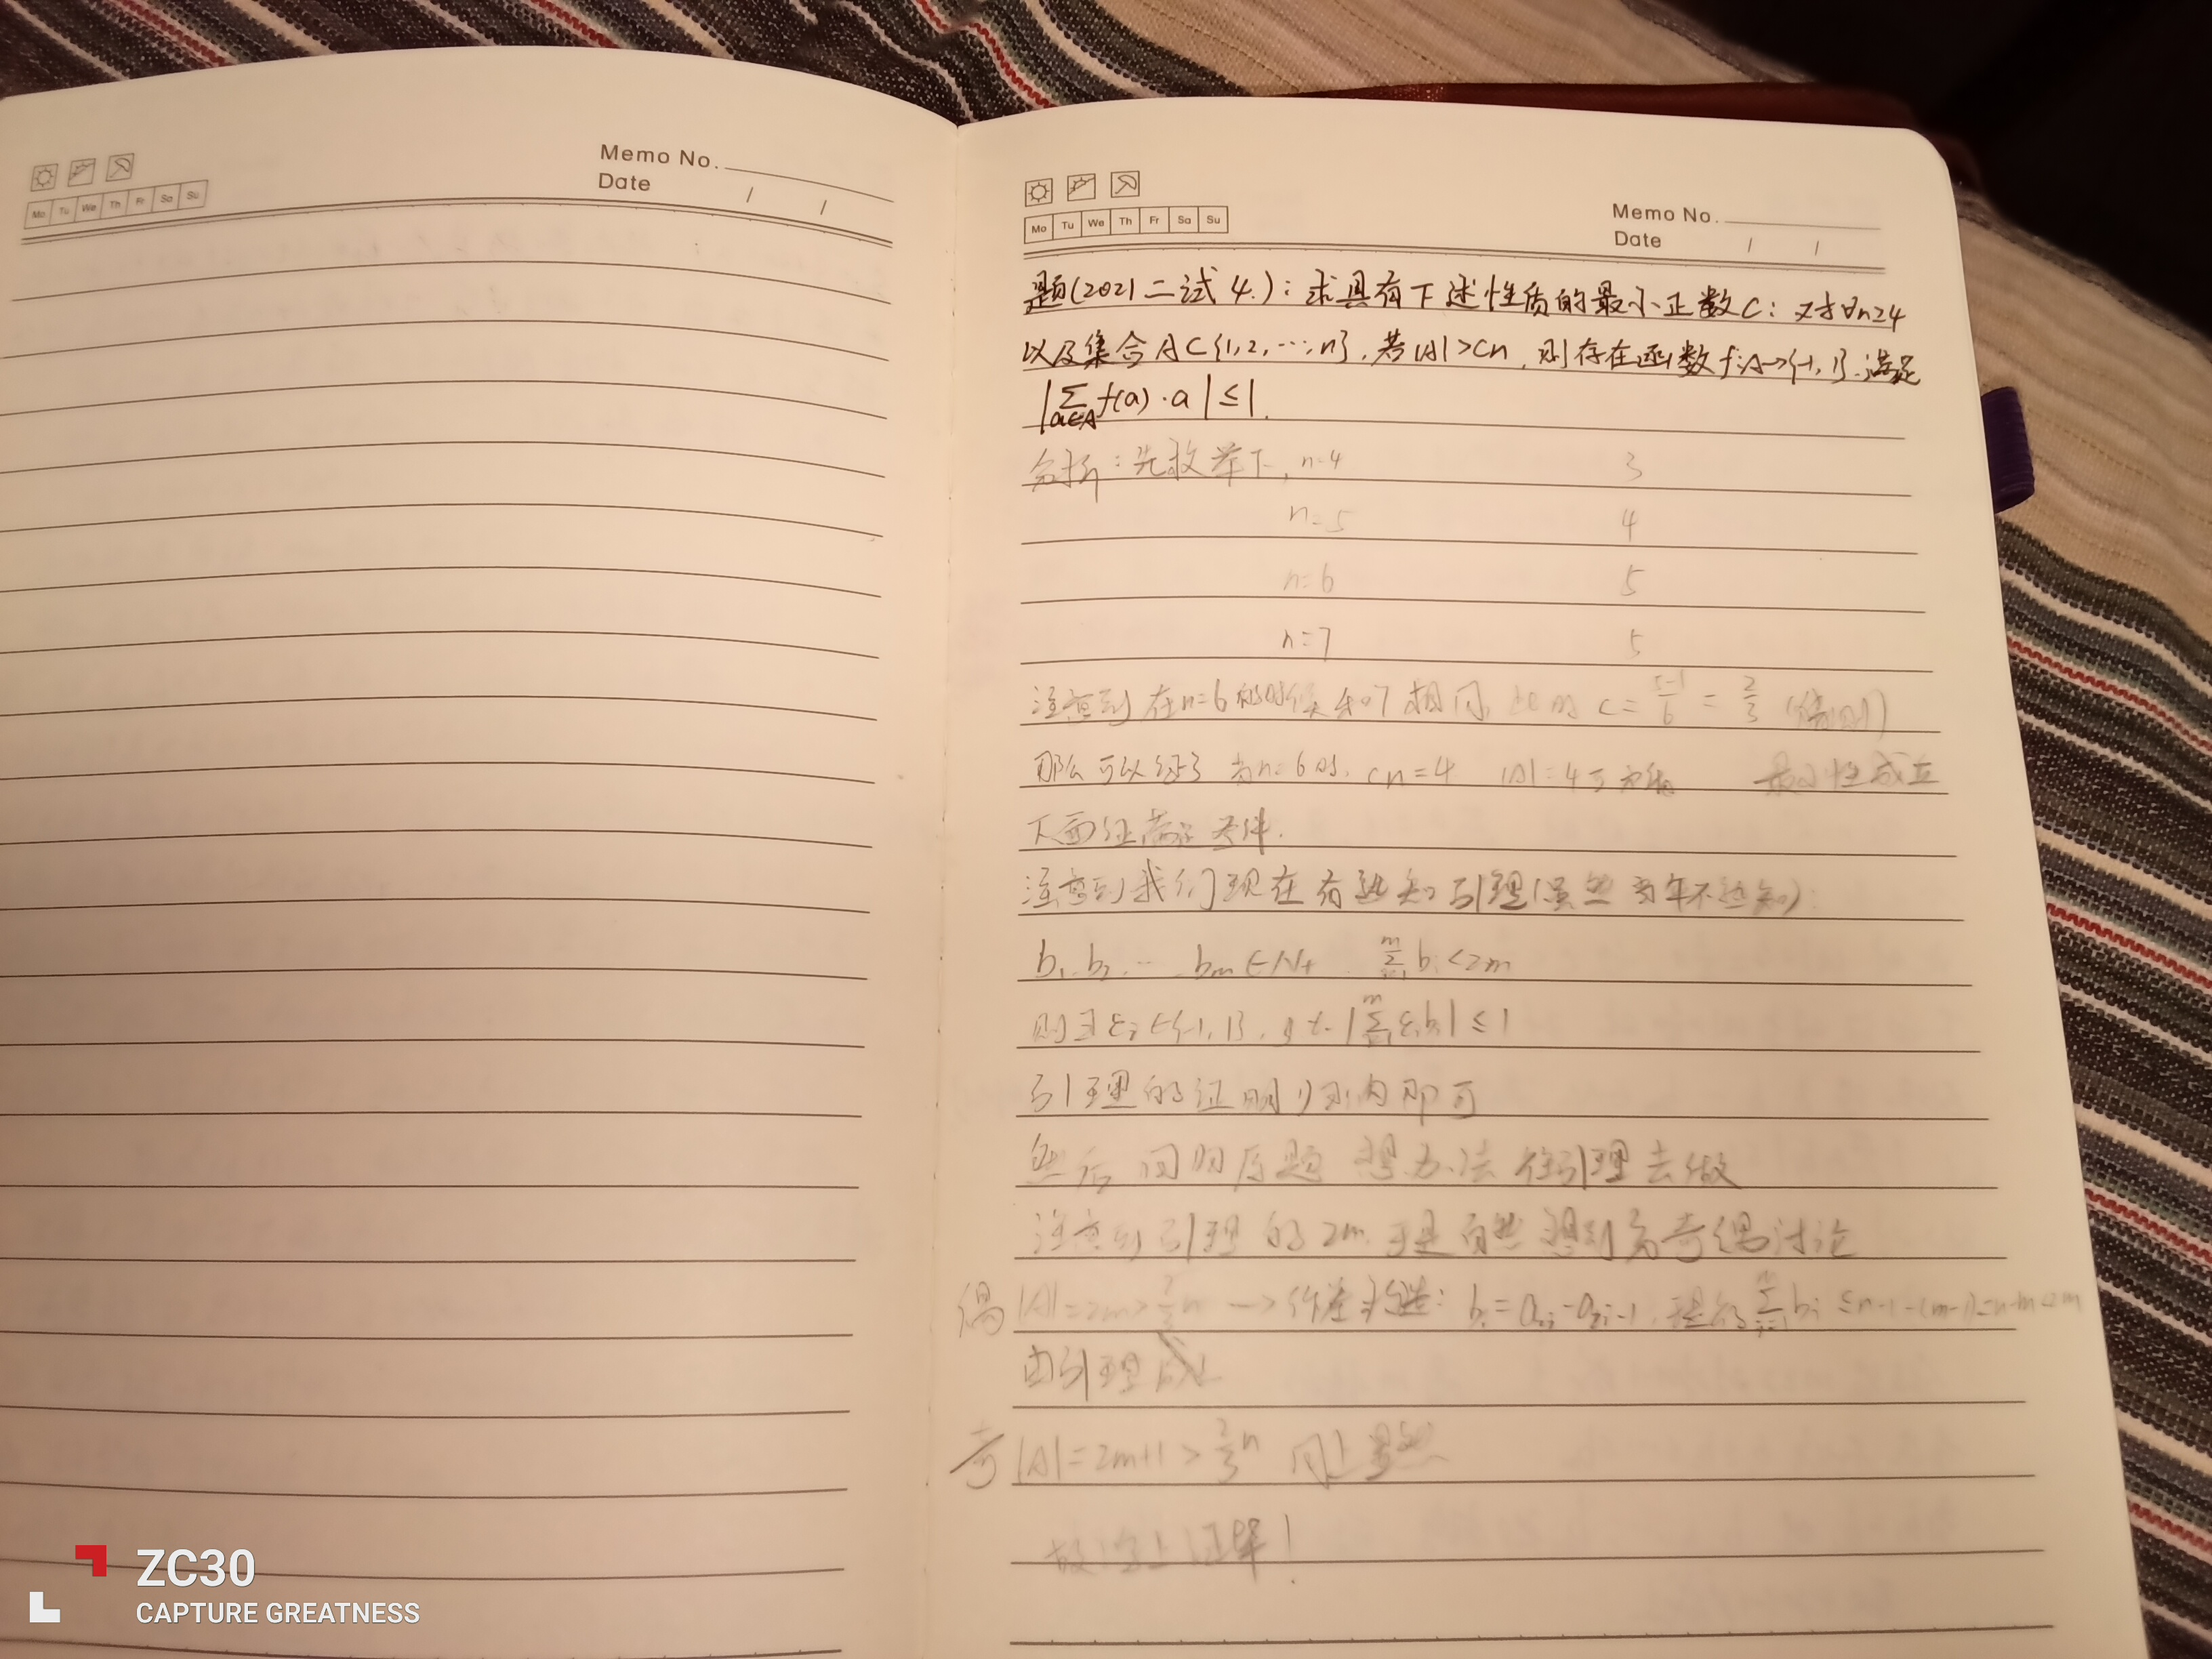 Memo No.
Date / /
Mo Tu We Th Fr Sa Su
Memo No.
Date / /
Mo Tu We Th Fr Sa Su
题(2021二试4.):求具有下述性质的最小正数C:对∀n≥4
以及集合A⊂{1,2,…,n},若|A|>Cn,则存在函数f:A→{-1,1}.满足
|∑_{a∈A} f(a)·a|≤1.
分析:先枚举下, n=4 3
n=5 4
n=6 5
n=7 5
注意到在n=6的时候和7相同 此时 C=(5-1)/6=2/3
那么可以 当n=6时, cn=4 |A|=4 最小性成立
下面证满足条件.
注意到我们现在有熟知引理(虽然当年不熟知):
b₁,b₂,… bm∈N₊ ∑ᵐ bᵢ<2m
则∃εᵢ∈{-1,1}, s.t. |∑ᵐ εᵢbᵢ|≤1
引理的证明归纳即可
然后回归原题 想办法往引理去做
注意到引理的2m, 于是自然想到分奇偶讨论
偶 |A|=2m>2/3n → 作差构造: bᵢ=a₂ᵢ-a₂ᵢ₋₁, ∑bᵢ≤n-1-(m-1)=n-m<2m
由引理成立
奇 |A|=2m+1>2/3n 同上显然
故综上证毕!
ZC30
CAPTURE GREATNESS